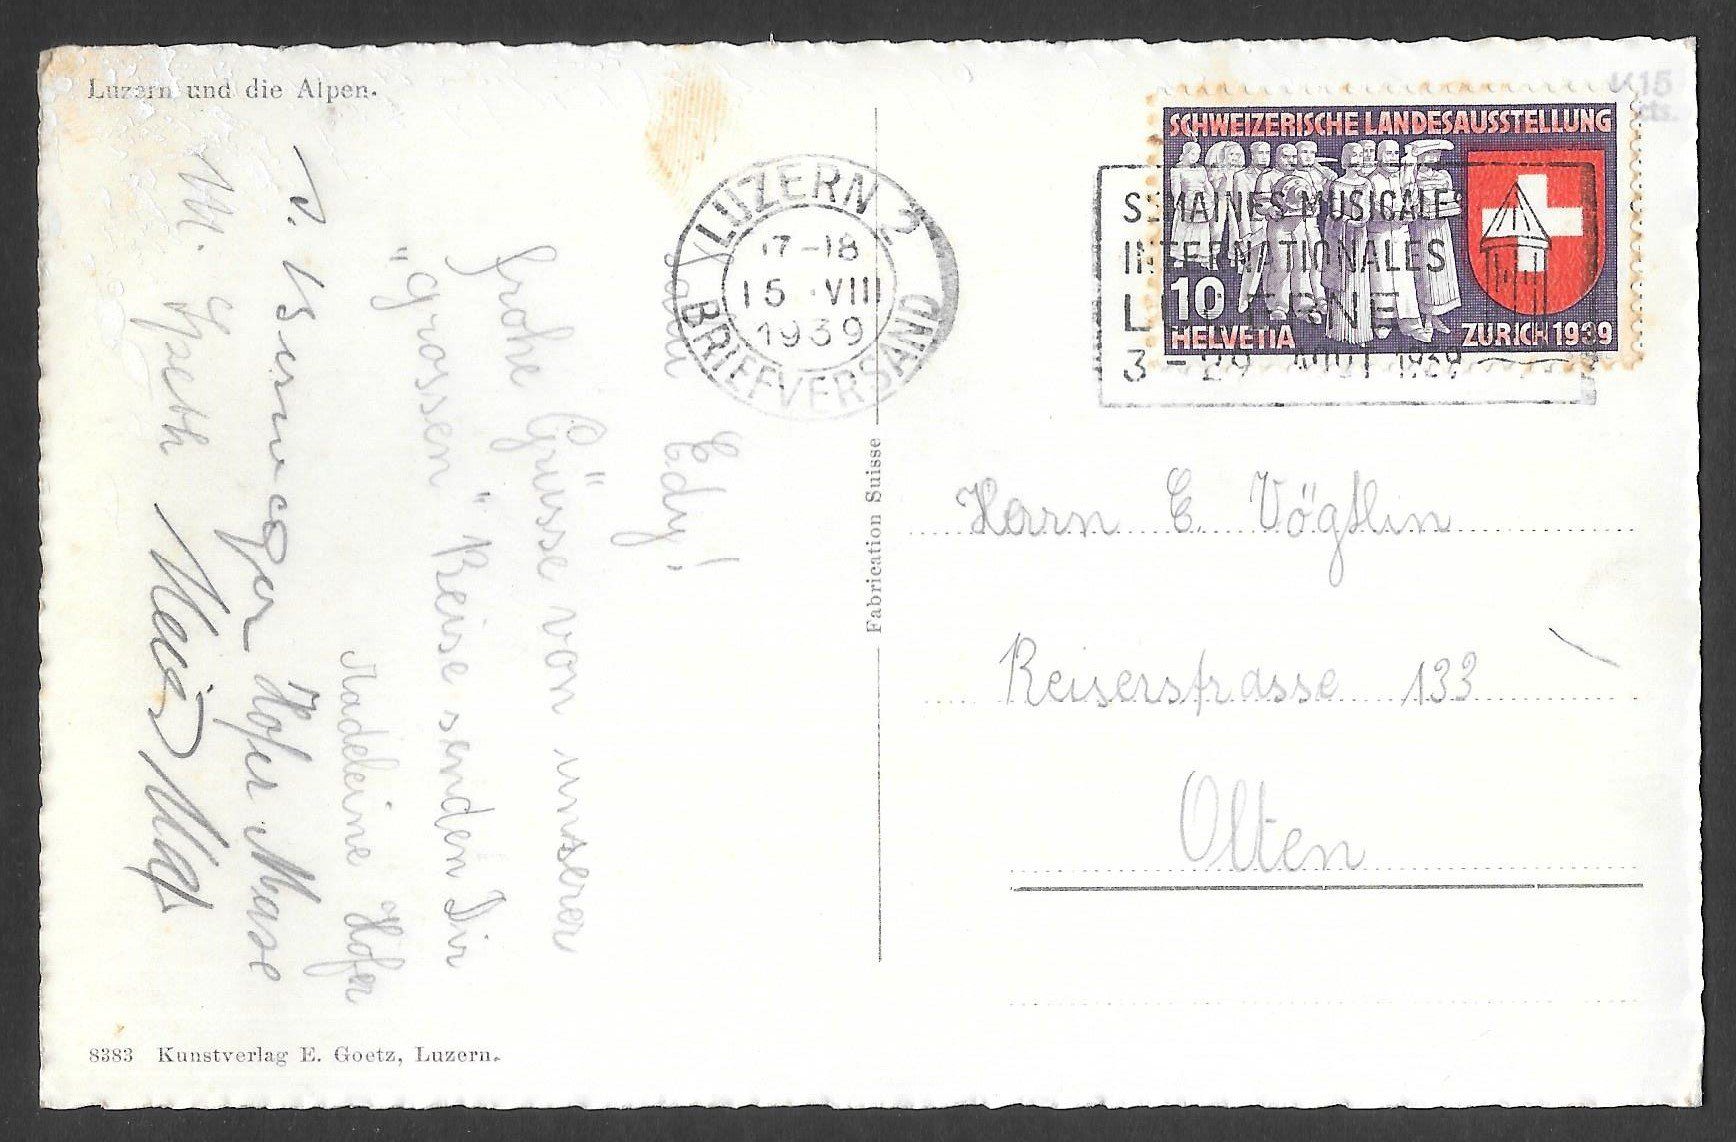 Luzern und die Alpen.
Edy!
Frohe Grüsse von unserer
"grossen" Reise senden Dir
Madeleine Hofer
Hofer
M.
8383 Kunstverlag E. Goetz, Luzern.
Fabrication Suisse
LUZERN 2
17-18
15 VIII
1939
BRIEFVERSAND
SEMAINES MUSICALES
INTERNATIONALES
LUCERNE
3-29 AOUT 1939
SCHWEIZERISCHE LANDESAUSSTELLUNG
10
HELVETIA
ZÜRICH 1939
15
cts.
Herrn E. Vögtlin
Reiserstrasse 133
Olten